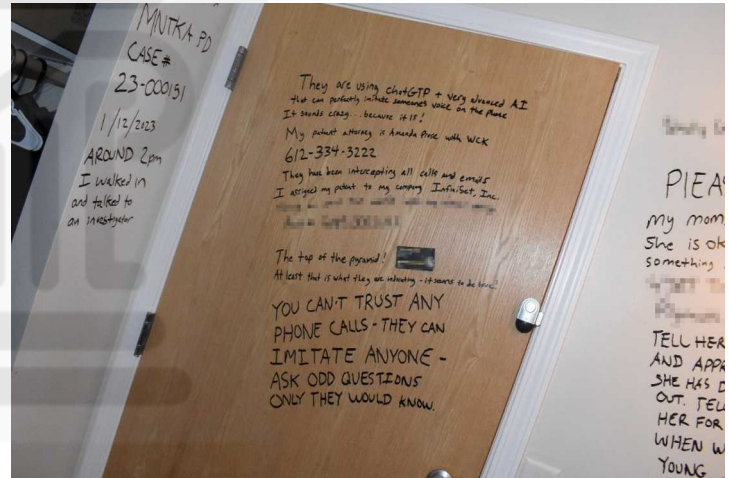 MNTKA PD
CASE #
23-000151
1/12/2023
AROUND 2pm
I walked in
and talked to
an investigator
They are using ChatGTP + very advanced AI
that can perfectly imitate someone's voice on the phone
It sounds crazy... because it is!
My patent attorney is Amanda Prose with WCK
612-334-3222
They have been intercepting all calls and emails
I assigned my patent to my company InfiniSet, Inc.
The top of the pyramid!
At least that is what they are indicating - it seems to be here.
YOU CAN'T TRUST ANY
PHONE CALLS - THEY CAN
IMITATE ANYONE -
ASK ODD QUESTIONS
ONLY THEY WOULD KNOW.
my mom
She is ok
something
TELL HER
AND
SHE HAS
OUT.
HER FOR
WHEN
YOUNG